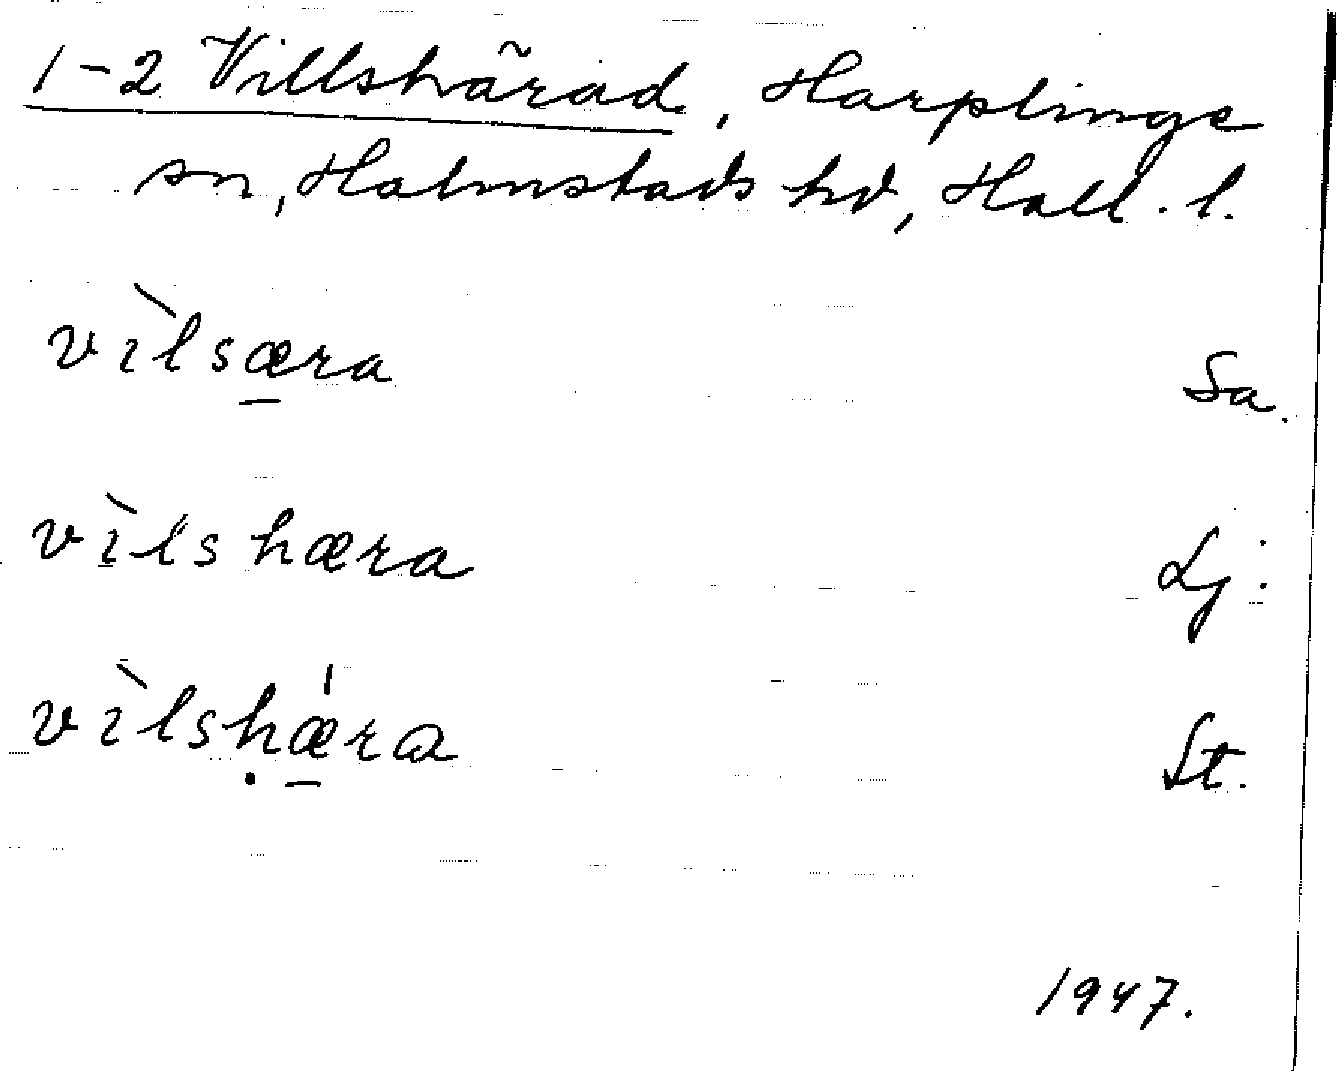 1-2 Villshärad, Harplinge
sn, Halmstads hd, Hall. l.
vìlsæra Sa.
vìlshæra Lj.
vìlshǽra St.
1947.